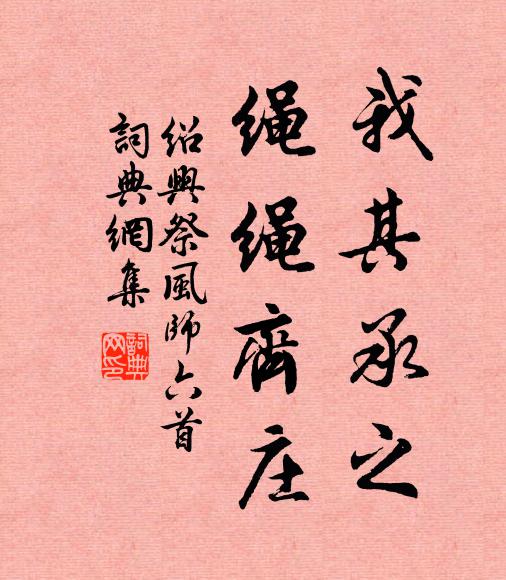 我其承之
绳绳齊庄
绍興祭風師六首
詞典網集
詞典
网印